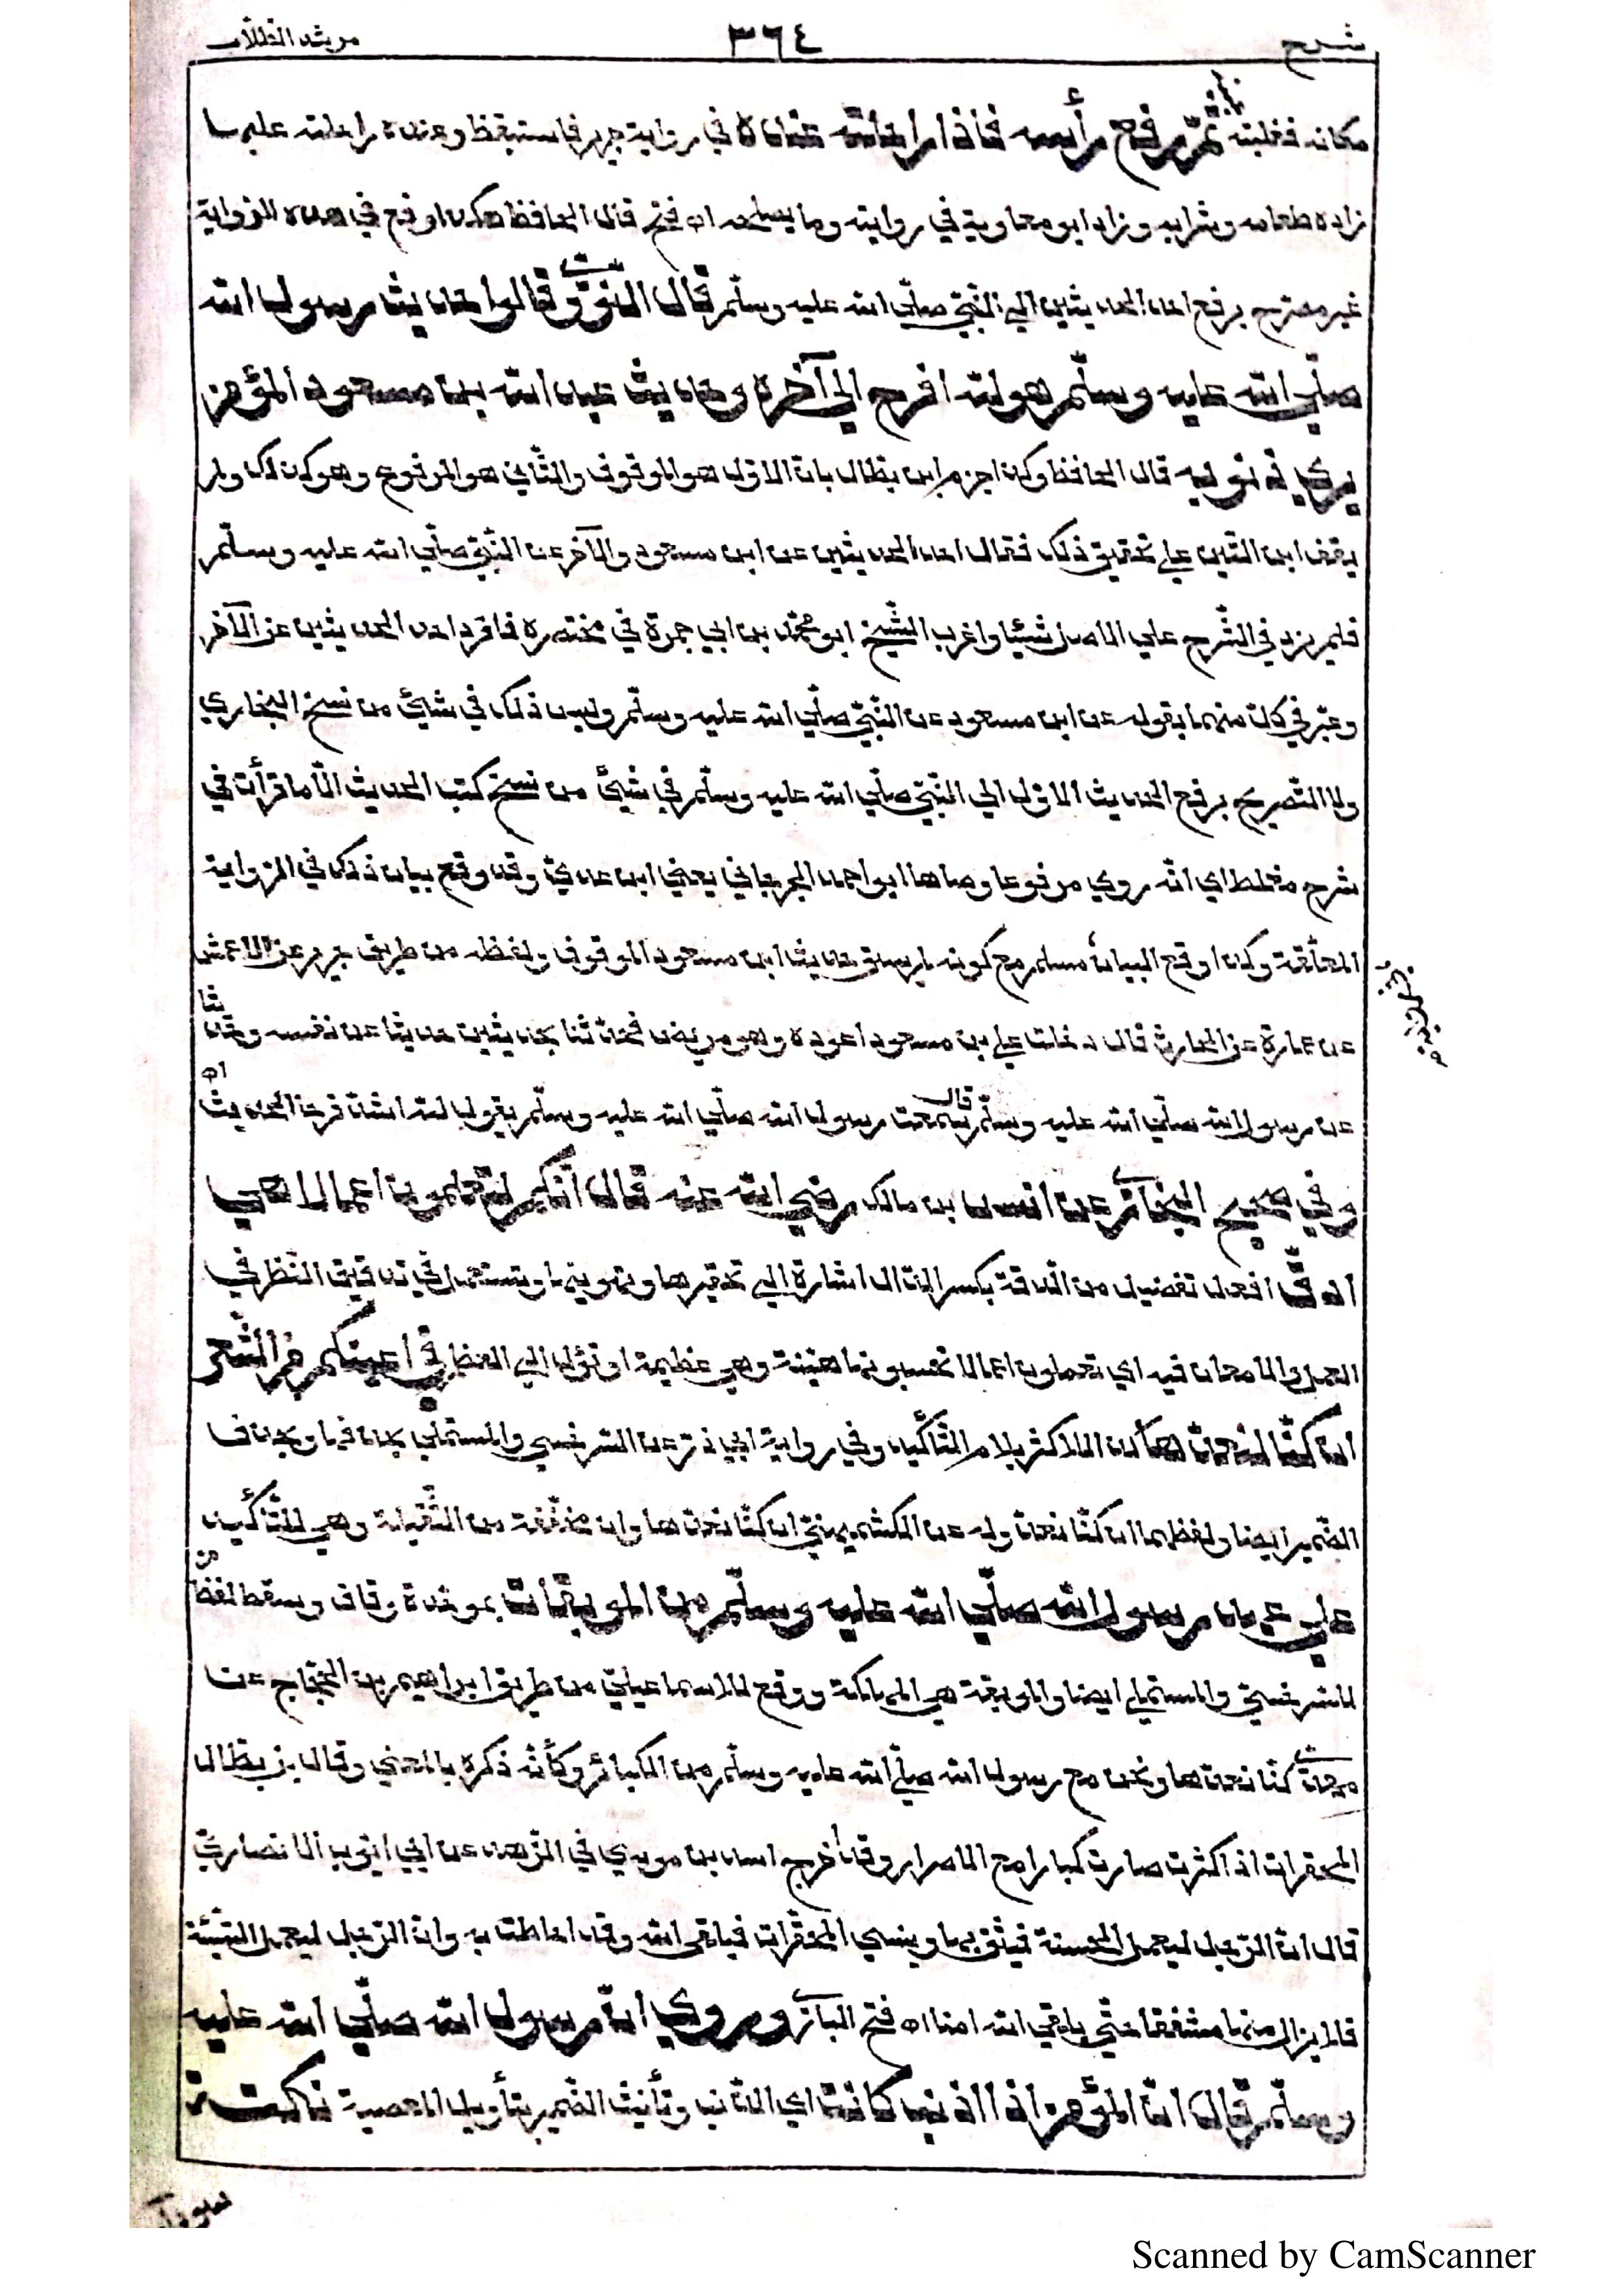 شرح ٣٦٤ مرشد الطلاب
مكانه فغلبته ثم رفع رأسه فاذا راحلته عنده في رواية جرير فاستيقظ وعنده راحلته عليها
زاده طعامه وشرابه وزاد ابو معاوية في روايته وما يصلحه اه فتح قال الحافظ هكذا وقع في هذه الرواية
غير مصرح برفع احد الحديثين الي النبي صلي الله عليه وسلم قال النووي قالوا حديث رسول الله
صلي الله عليه وسلم هو لله افرح الي آخره وحديث عبد الله بن مسعود المؤمن
يري ذنوبه قال الحافظ وكذا جزم ابن بطال بان الاول هو الموقوف والثاني هو المرفوع وهو كذلك ولم
يقف ابن التين علي تحقيق ذلك فقال احد الحديثين عن ابن مسعود والآخر عن النبي صلي الله عليه وسلم
فلم يزد في الشرح علي الاصل شيئا واغرب الشيخ ابو محمد بن ابي جمرة في مختصره فافرد احد الحديثين عن الآخر
وعبر في كل منهما بقوله عن ابن مسعود عن النبي صلي الله عليه وسلم وليس ذلك في شئ من نسخ البخاري
ولا التصريح برفع الحديث الاول الي النبي صلي الله عليه وسلم في شئ من نسخ كتب الحديث الا ما قرأت في
شرح مغلطاي انه روي مرفوعا وهاها ابو احمد الجرجاني يعني ابن عدي وقد وقع بيان ذلك في الرواية
المعلقة وكذا وقع البيان مسلم مع كونه لم يسق حديث ابن مسعود الموقوف ولفظه من طريق جرير عن الاعمش
عن عمارة عن الحارث قال دخلت علي بن مسعود اعوده وهو مريض فحدثنا بحديثين حديثا عن نفسه وحديثا
عن رسول الله صلي الله عليه وسلم قال سمعت رسول الله صلي الله عليه وسلم يقول لله اشد فرحا الحديث اه
وفي صحيح البخاري عن انس بن مالك رضي الله عنه قال انكم لتعملون اعمالا هي
ادق افعل تفضيل من الدقة بكسر الدال اشارة الي تحقيرها وتهوينها وتستعمل في تدقيق النظر في
العمل والامعان فيه اي تعملون اعمالا تحسبونها هينة وهي عظيمة او تؤل الي العظم في اعينكم من الشعر
ان كنا لنعدها كذا للاكثر بلام التأكيد وفي رواية ابي ذر عن السرخسي والمستملي بحذفها وبحذف
الضمير ايضا ولفظهما ان كنا نعد وله عن الكشميهني ان كنا نعدها وان مخففة من الثقيلة وهي للتأكيد
علي عهد رسول الله صلي الله عليه وسلم من الموبقات بموحدة وقاف وسقط لفظ من
للسرخسي والمستملي ايضا والموبقة هي المهلكة ووقع للاسماعيلي من طريق ابراهيم بن الحجاج عن
مهدي كنا نعدها ونحن مع رسول الله صلي الله عليه وسلم من الكبائر وكأنه ذكره بالمعني وقال بن بطال
المحقرات اذا كثرت صارت كبارا مع الاصرار وقد اخرج اسد بن موسي في الزهد عن ابي ايوب الانصاري
قال ان الرجل ليعمل الحسنة فيثق بها وينسي المحقرات فيلقي الله وقد احاطت به وان الرجل ليعمل السيئة
فلا يزال منها مشفقا حتي يلقي الله امنا اه فتح الباري وروي ان رسول الله صلي الله عليه
وسلم قال ان المؤمن اذا اذنب كانت اي الذنب وتأنيث الضمير بتأويل المعصية نكتة
Scanned by CamScanner